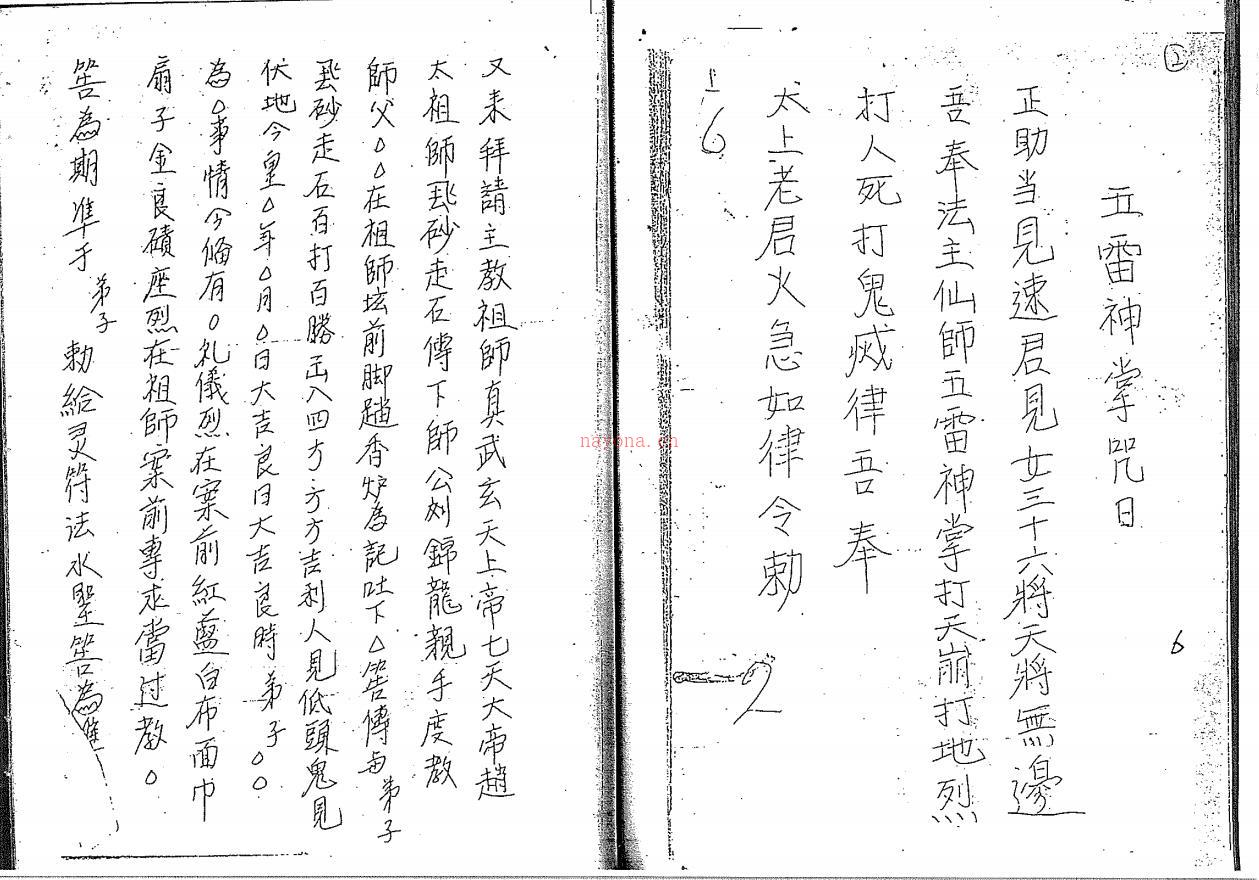 ②
五雷神掌咒曰
正助当見速君見女三十六將天將無邊
吾奉法主仙師五雷神掌打天崩打地烈
打人死打鬼烕律吾奉
太上老君火急如律令勅
6
6
2
又来拜請主教祖師真武玄天上帝七天大帝趙
太祖師飛砂走石傳下師公刘錦龍親手度教
師父△△在祖師坛前脚踏香炉為記吐下△筶傳与弟子
飛砂走石百打百勝出入四方方方吉利人見低頭鬼見
伏地今皇△年△月△日大吉良日大吉良時弟子△△
為△事情今俻有△礼儀烈在案前紅藍白布面巾
扇子金良磧座烈在祖師案前專求當过教△
筶為期准于弟子勅給灵符法水聖筶為准
nayona.cn